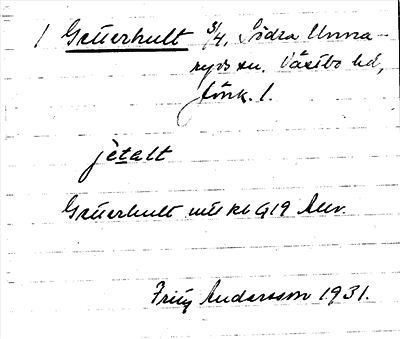 1 Gäterhult 3/4, Södra Unna-
ryds sn. Västbo hd,
Jönk. l.
jètalt
Gäterhult mtl RI 919 Allv.
Fritz Andersson 1931.